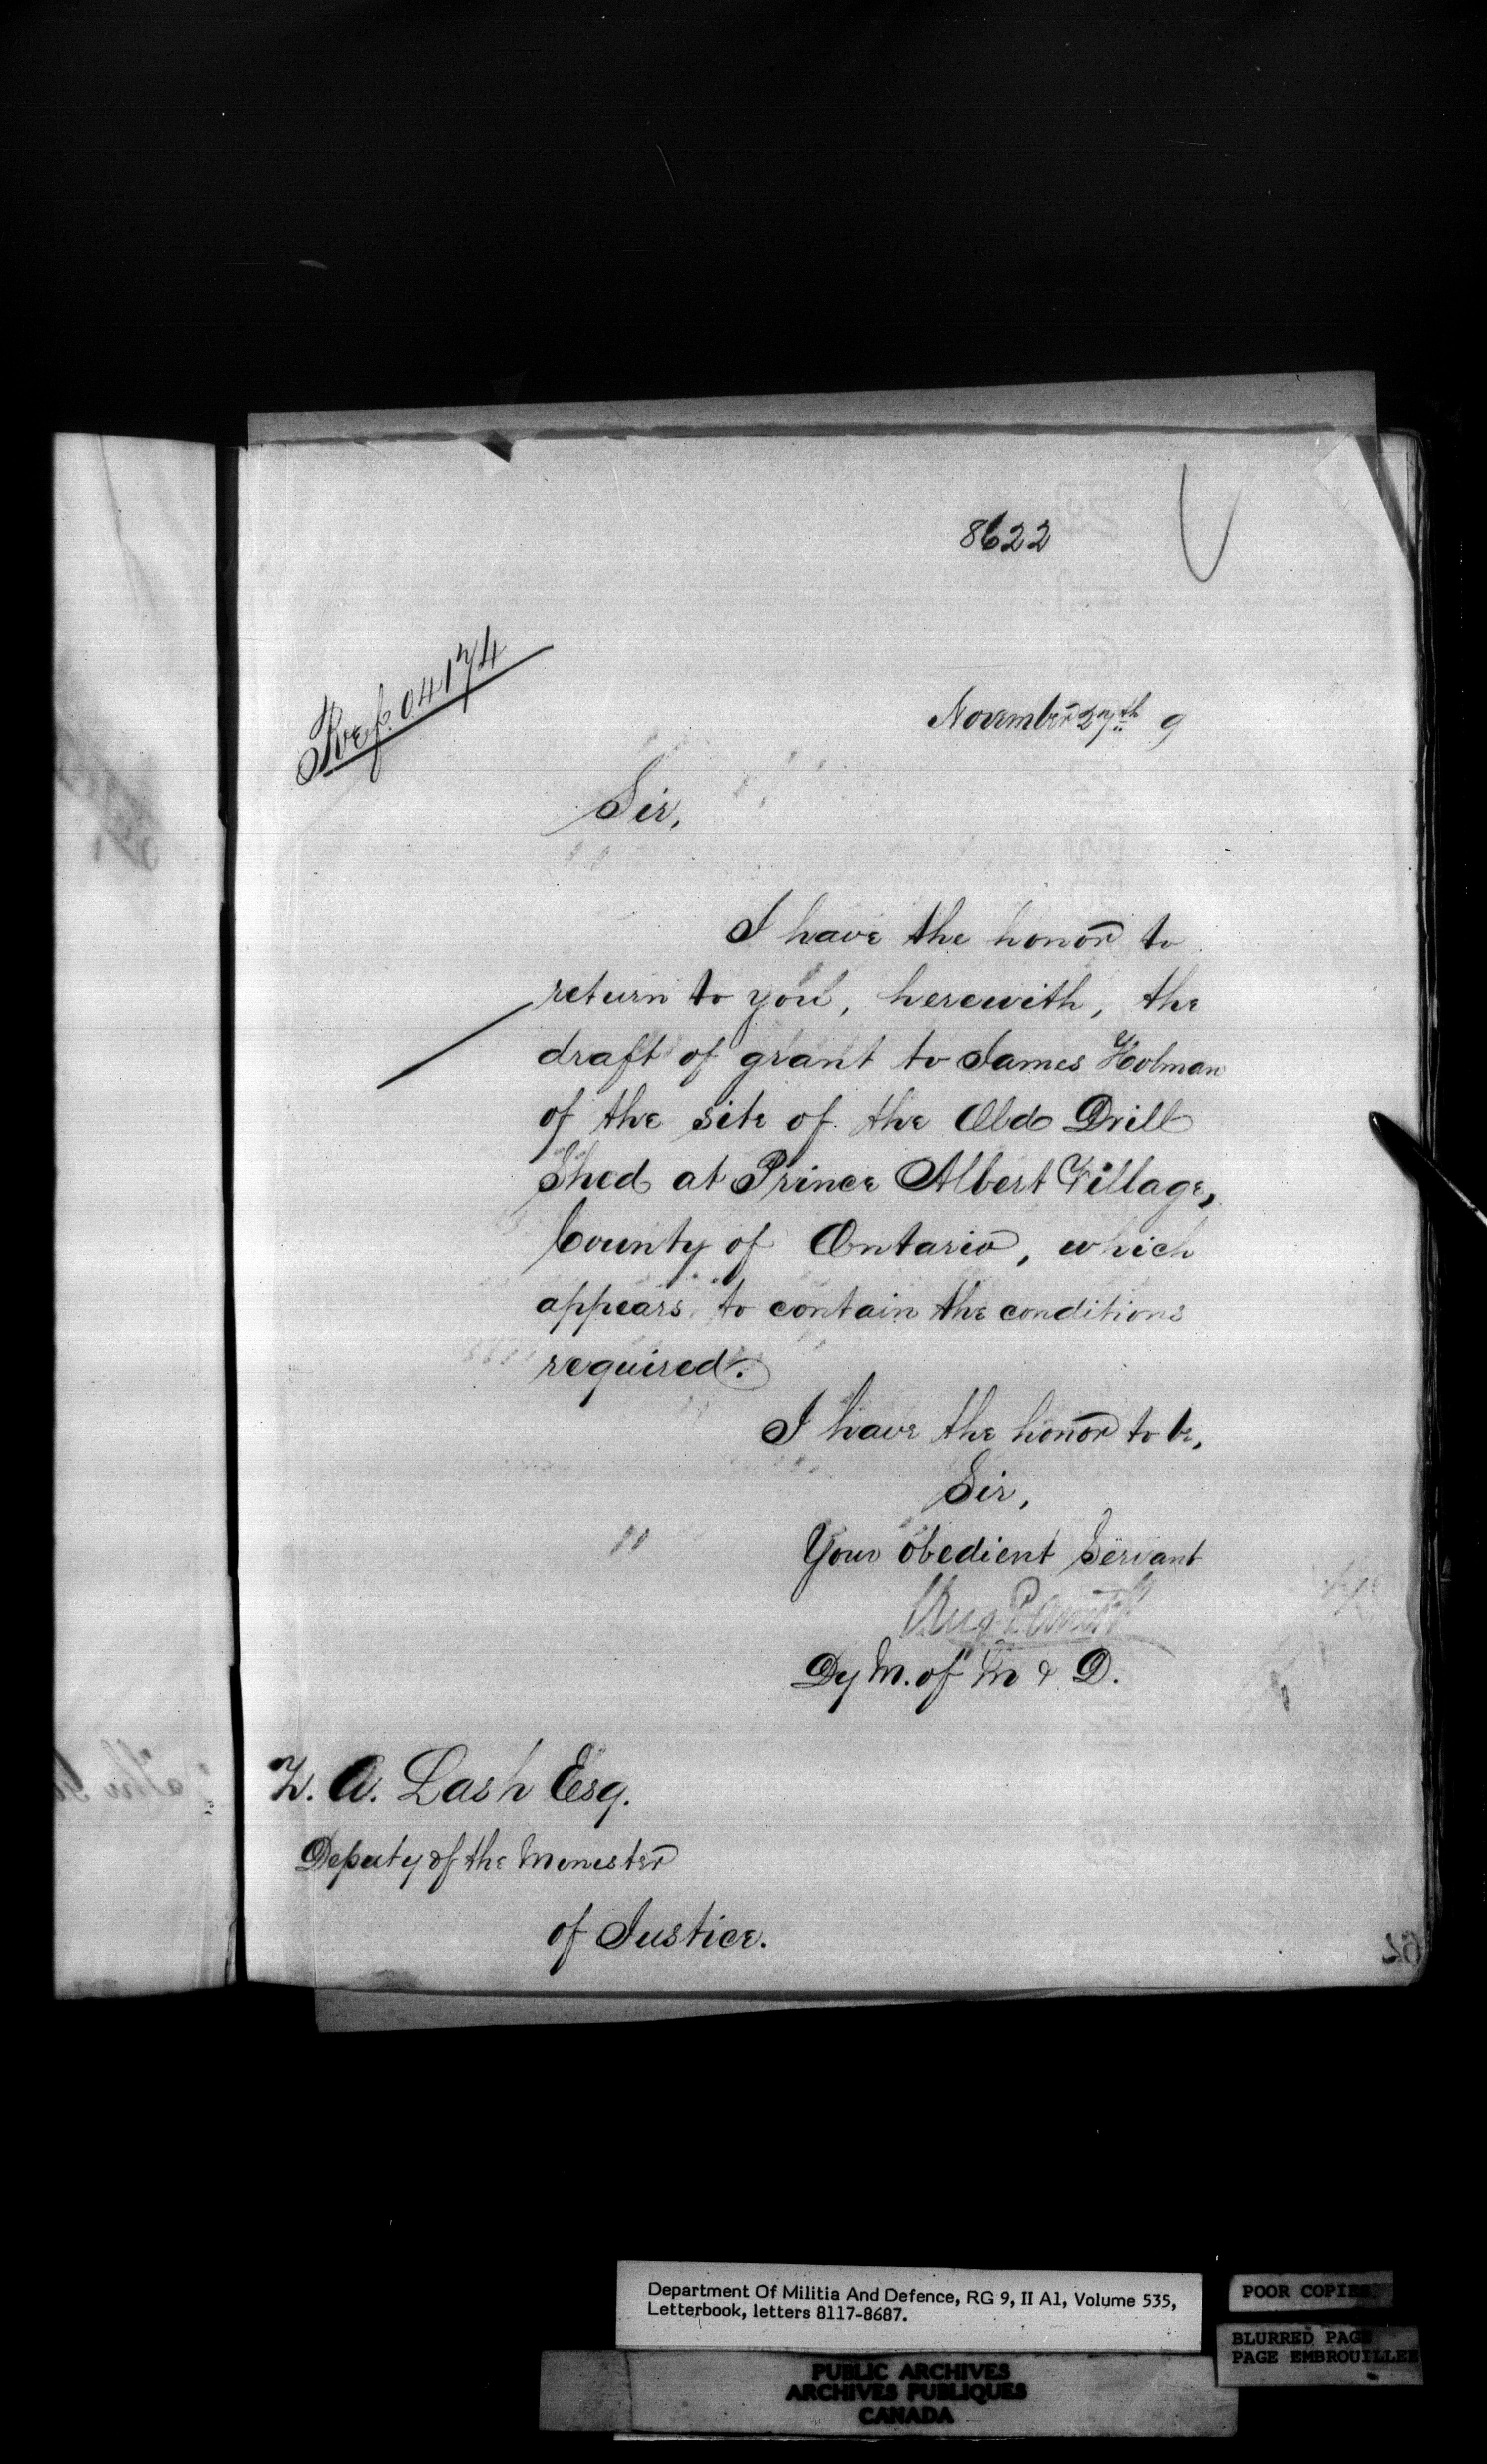 8622
Ref. 04174
November 27th 9
Sir,
I have the honor to
return to you, herewith, the
draft of grant to James Holman
of the site of the Old Drill
Shed at Prince Albert Village,
County of Ontario, which
appears to contain the conditions
required.
I have the honor to be,
Sir,
Your obedient Servant
Dy M. of M & D.
Z. A. Lash Esq.
Deputy of the Minister
of Justice.
Department Of Militia And Defence, RG 9, II A1, Volume 535,
Letterbook, letters 8117-8687.
POOR COPIES
BLURRED PAGE
PAGE EMBROUILLEE
PUBLIC ARCHIVES
ARCHIVES PUBLIQUES
CANADA